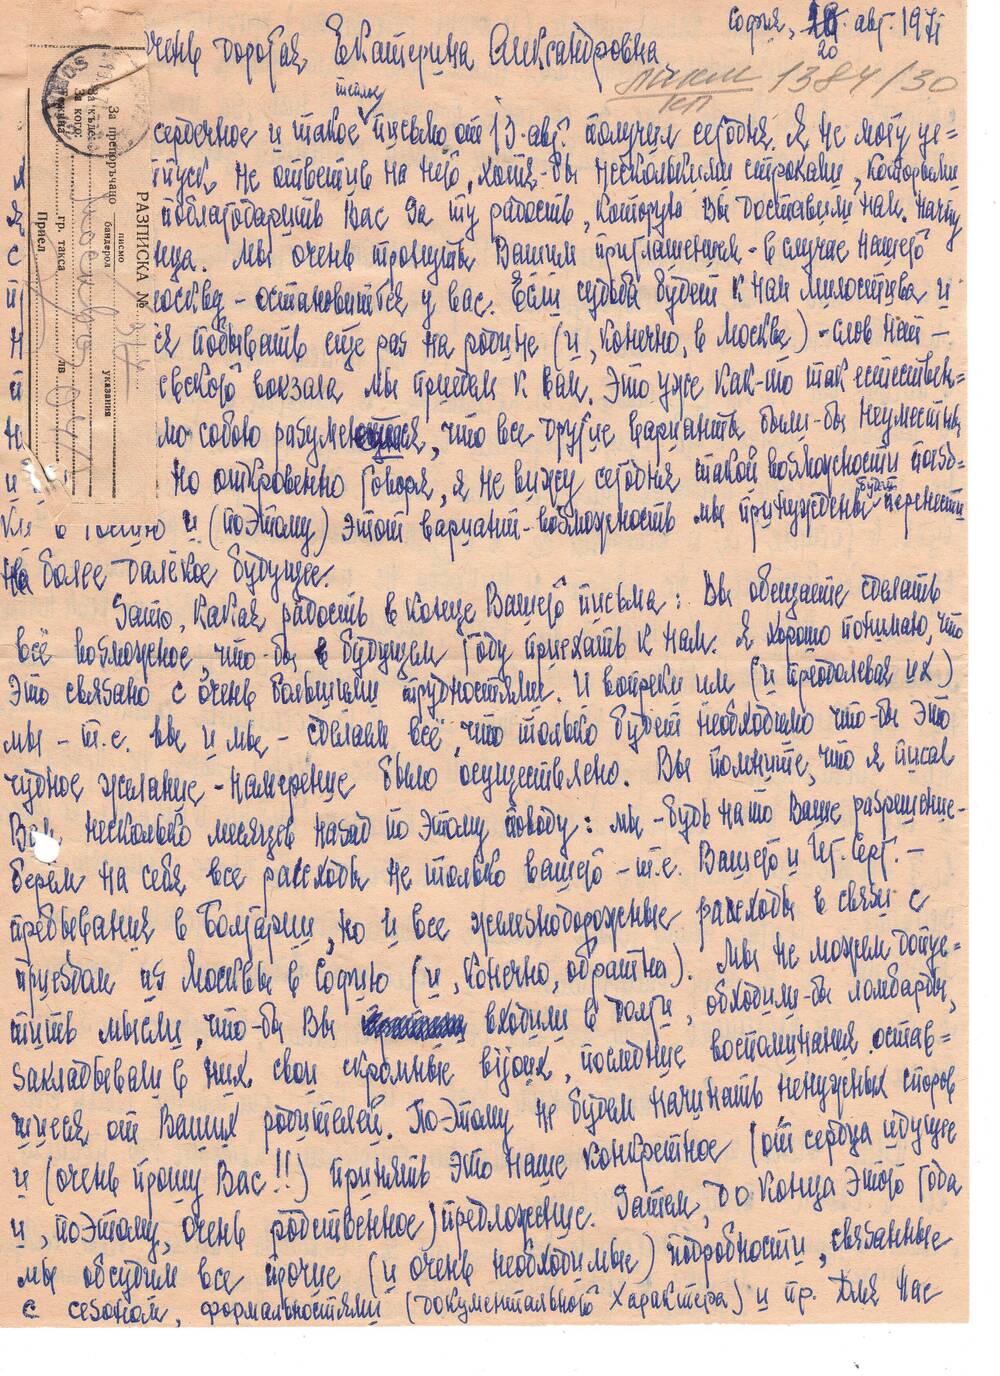 София, 20 авг. 1971
Очень дорогая Екатерина Александровна,
КП 1384/30
теплое
сердечное и такое письмо от 13 авг. получил сегодня. Я не могу уе=
не ответив на него, хотя-бы несколькими строками, которыми
поблагодарить Вас за ту радость, которую Вы доставили нам. Начну
Мы очень тронуты Вашим приглашением - в случае нашего
- остановиться у вас. Если судьба будет к нам милостива и
побывать еще раз на родине (и, конечно, в Москве) - слов нет -
вокзала мы приедем к Вам. Это уже как-то так естествен=
собою разумеется, что все другие варианты были-бы неуместны
Но откровенно говоря, я не вижу сегодня такой возможности поезд=
и (поэтому) этот вариант-возможность мы принуждены будем перенести
на более далёкое будущее.
Зато, какая радость в конце Вашего письма: Вы обещаете сделать
всё возможное, что-бы в будущем году приехать к нам. Я хорошо понимаю, что
это связано с очень большими трудностями. И вопреки им (и преодолевая их)
мы - т.е. вы и мы - сделаем всё, что только будет необходимо что-бы это
чудное желание - намерение было осуществлено. Вы помните, что я писал
Вам несколько месяцев назад по этому поводу: мы - будь на то Ваше разрешение -
берем на себя все расходы не только вашего - т.е. Вашего и Иг. Серг. -
пребывания в Болгарии, но и все железнодорожные расходы в связи с
приездом из Москвы в Софию (и, конечно, обратна). Мы не можем допус=
тить мысли, что-бы Вы входили в долги, обходили-бы ломбарды,
закладывали в них свои скромные bijoux, последние воспоминания остав=
шиеся от Ваших родителей. Поэтому не будем начинать ненужных споров
и (очень прошу Вас!!) принять это наше конкретное (от сердца идущее
и, поэтому, очень родственное) предложение. Затем, до конца этого года
мы обсудим все прочие (и очень необходимые) подробности, связанные
с сезоном, формальностями (документального характера) и пр. Для Нас
РАЗПИСКА №
За препоръчано
писмо
бандерол
указания
За колет
гр. такса
лв.
Приел